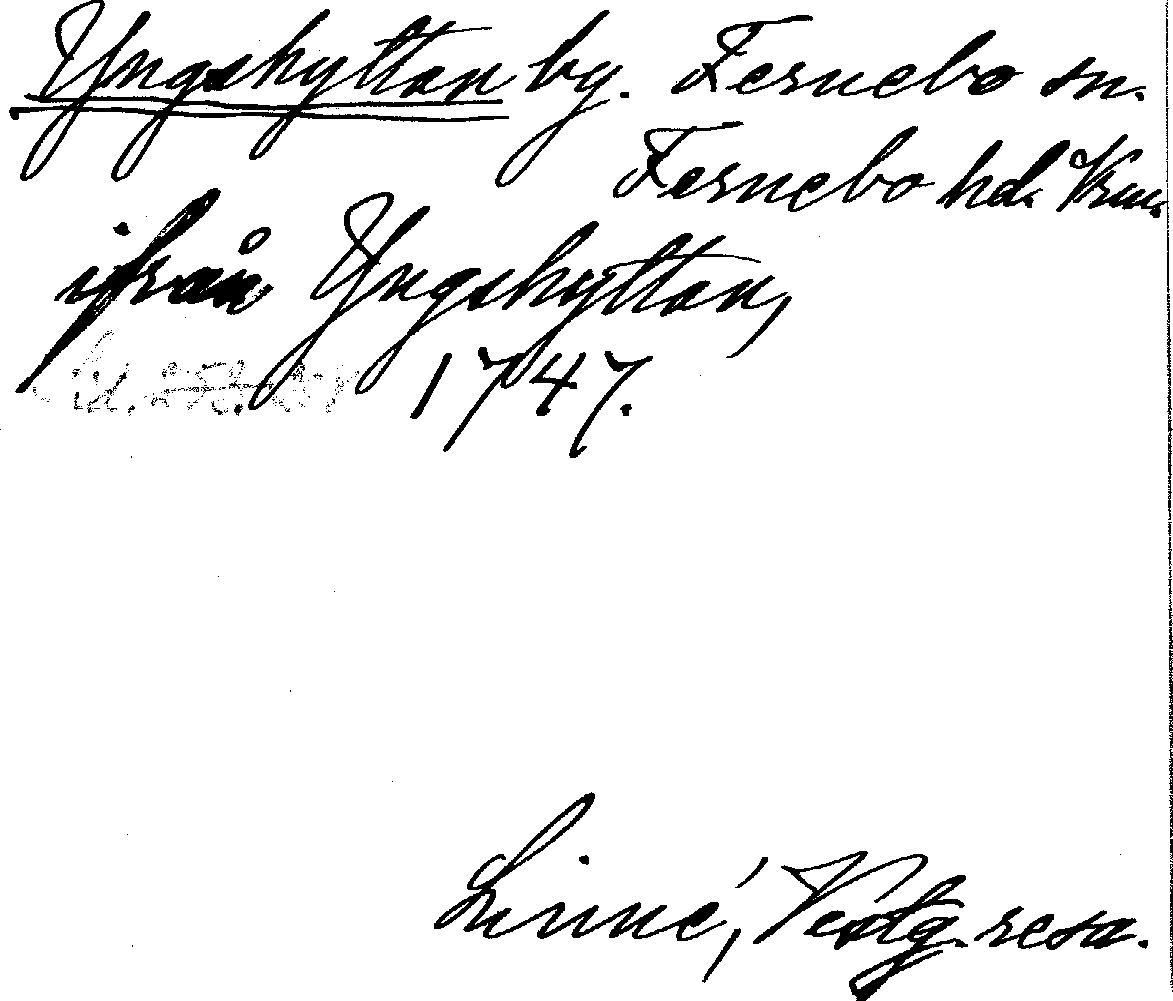 Yngshyttan by. Fernebo sn.
Fernebo hd. Vrml.
ifrån Yngshyttan,
1747.
Linné, Vestg. resa.